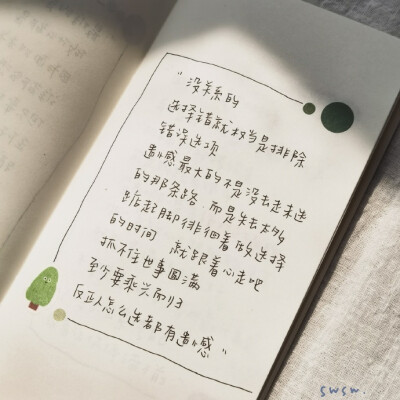 “没关系的
选择错就权当是排除
错误选项
遗憾感最大的不是没去走未选
的那条路 而是失去太多
踮起脚徘徊着做选择
的时间 就跟着心走吧
抓不住世事圆满
至少要乘兴而归
反正人怎么选都有遗憾”
swsw.